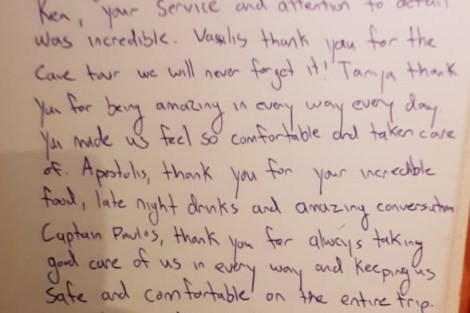 Ken, your Service and attention to detail
was incredible. Vasilis thank you for the
Cave tour we will never forget it! Tanya thank
you for being amazing in every way every day.
You made us feel so comfortable and taken care
of. Apostolis, thank you for your incredible
food, late night drinks and amazing conversation
Captain Pavlos, thank you for always taking
good care of us in every way and keeping us
safe and comfortable on the entire trip.